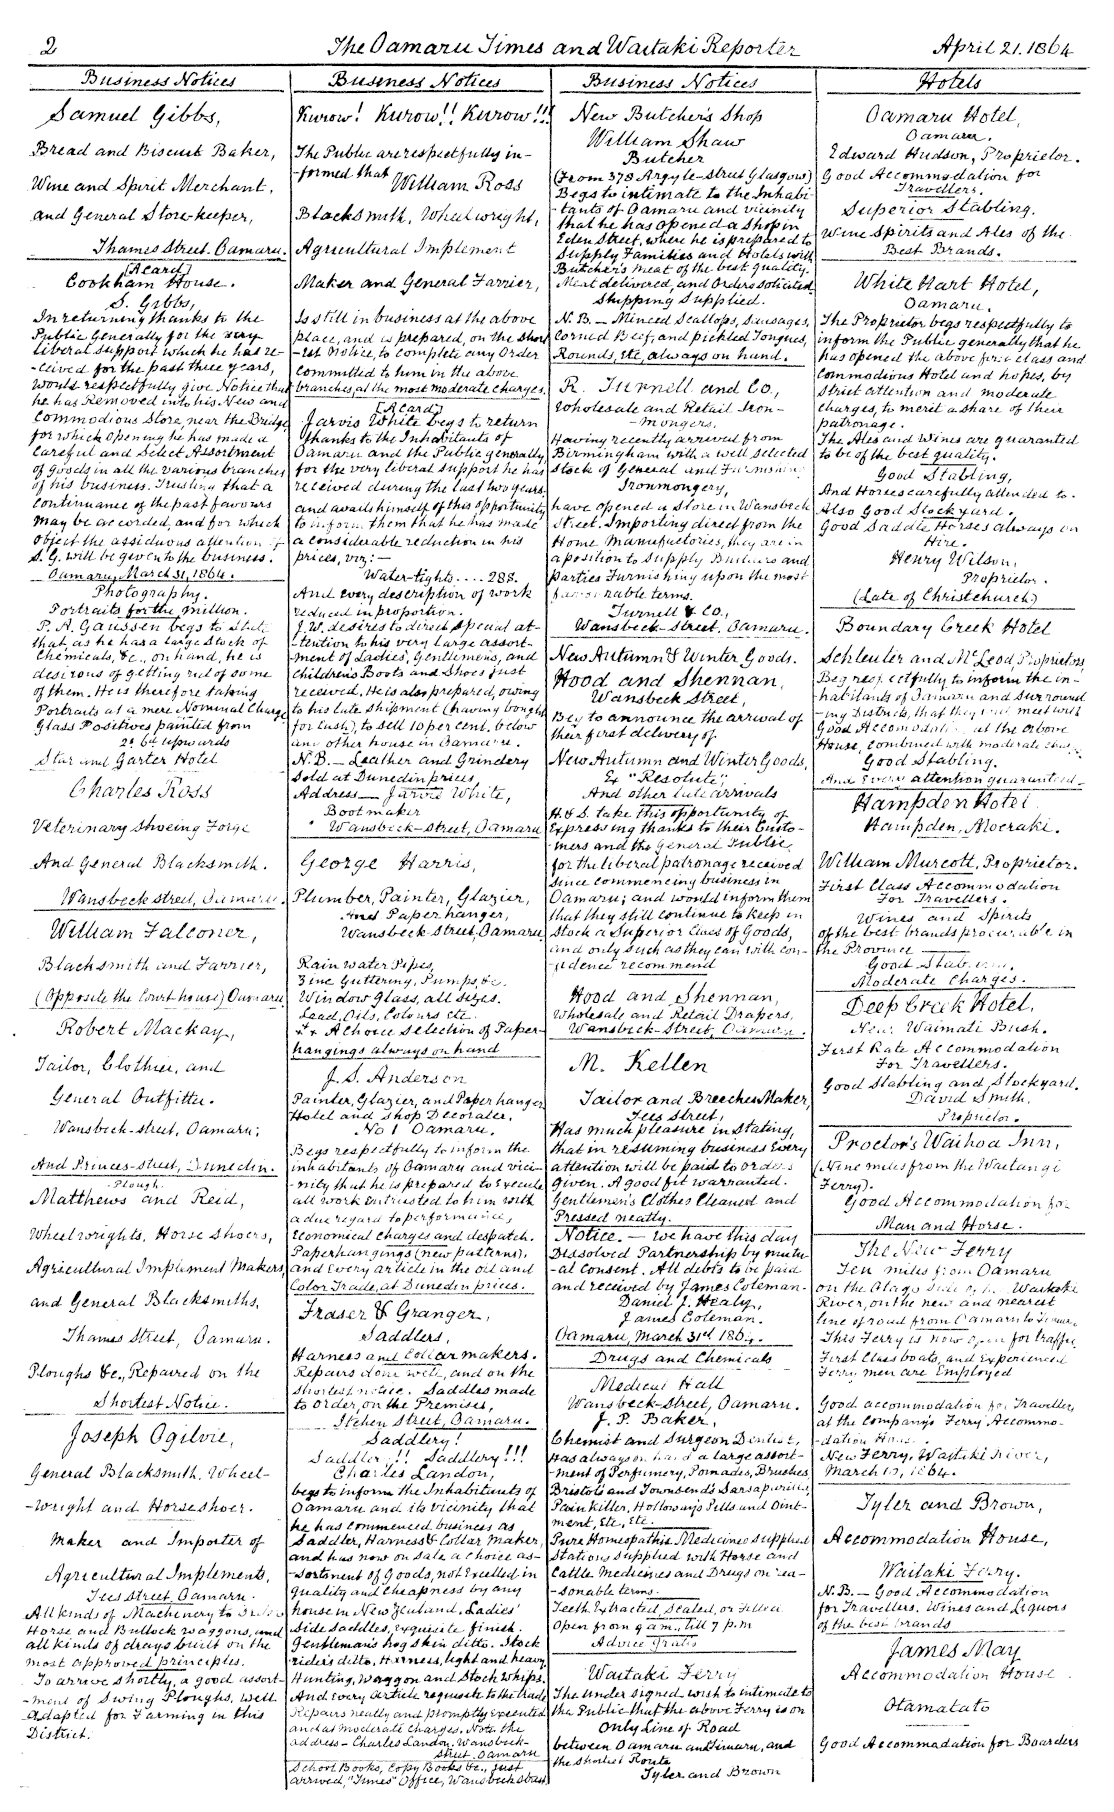 2
The Oamaru Times and Waitaki Reporter
April 21. 1864
Business Notices
Samuel Gibbs,
Bread and Biscuit Baker,
Wine and Spirit Merchant,
and General Store-keeper,
Thames Street. Oamaru.
[A card]
Cookham House.
S. Gibbs,
In returning thanks to the
Public Generally for the very
liberal support which he has re-
-ceived for the past three years,
would respectfully give Notice that
he has Removed into his New and
Commodious Store, near the Bridge
for which opening he has made a
Careful and Select Assortment
of goods in all the various branches
of his business. Trusting that a
continuance of the past favours
may be accorded, and for which
object the assiduous attention of
S. G. will be given to the business.
Oamaru, March 31, 1864.
Photography.
Portraits for the million.
P. A. Gaussen begs to State
that, as he has a large stock of
Chemicals, &c., on hand, he is
desirous of getting rid of some
of them. He is therefore taking
Portraits at a mere Nominal Charge
Glass Positives painted from
2s 6d upwards
Star and Garter Hotel
Charles Ross
Veterinary Shoeing Forge
And General Blacksmith.
Wansbeck street, Oamaru.
William Falconer,
Blacksmith and Farrier,
(Opposite the Court house) Oamaru
Robert Mackay,
Tailor, Clothier, and
General Outfitter.
Wansbeck-street, Oamaru;
And Princes-street, Dunedin.
Plough.
Matthews and Reid,
Wheelwrights, Horse Shoers,
Agricultural Implement Makers,
and General Blacksmiths,
Thames Street, Oamaru.
Ploughs &c., Repaired on the
Shortest Notice.
Joseph Ogilvie,
General Blacksmith, Wheel-
-wright and Horseshoer.
Maker and Importer of
Agricultural Implements,
Tees street Oamaru.
All kinds of Machinery to Order
Horse and Bullock waggons, and
all kinds of drays built on the
most approved principles.
To arrive shortly, a good assort-
-ment of Swing Ploughs, well
adapted for Farming in this
District.
Business Notices
Kurow! Kurow!! Kurow!!!
The Public are respectfully in-
-formed that
William Ross
Blacksmith, Wheelwright,
Agricultural Implement
Maker and General Farrier,
Is still in business at the above
place, and is prepared, on the short
-est notice, to complete any Order
committed to him in the above
branches, at the most moderate charges.
[A card]
Jarvis White begs to return
thanks to the Inhabitants of
Oamaru and the Public generally
for the very liberal support he has
received during the last two years
and avails himself of this opportunity
to inform them that he has made
a considerable reduction in his
prices, viz:—
Water-tights .... 28s.
And every description of work
reduced in proportion.
J. W. desires to direct special at-
-tention to his very large assort-
ment of Ladies', Gentlemen's, and
children's Boots and Shoes just
received. He is also prepared, owing
to his late shipment (having bought
for Cash), to sell 10 per cent. below
any other house in Oamaru.
N.B.— Leather and Grindery
sold at Dunedin prices,
Address— Jarvis White,
Bootmaker
Wansbeck-street, Oamaru
George Harris,
Plumber, Painter, Glazier,
And Paperhanger,
Wansbeck-street, Oamaru
Rain water Pipes,
Zinc Guttering, Pumps, &c.
Window Glass, all sizes.
Lead, Oils, Colours etc.
A choice selection of Paper-
hangings always on hand
J. S. Anderson
Painter, Glazier, and Paper hanger
Hotel and Shop Decorator.
No 1 Oamaru.
Begs respectfully to inform the
inhabitants of Oamaru and vici-
-nity that he is prepared to Execute
all work entrusted to him with
a due regard to performance,
Economical charges and despatch.
Paperhangings (new patterns),
and Every article in the oil and
Color Trade, at Dunedin prices.
Fraser & Granger,
Saddlers,
Harness and Collar makers.
Repairs done with, and on the
shortest notice. Saddles made
to order, on the Premises,
Itchen Street, Oamaru.
Saddlery!
Saddler!! Saddlery!!!
Charles Landon,
begs to inform the Inhabitants of
Oamaru and its vicinity that
he has commenced business as
Saddler, Harness & Collar Maker,
and has now on sale a choice as-
-sortment of Goods, not Excelled in
quality and cheapness by any
house in New Zealand. Ladies'
side saddles, exquisite finish.
Gentleman's hog skin ditto. Stock
rider's ditto. Harness, light and heavy.
Hunting, Waggon and Stock Whips.
And Every article requisite to the trade
Repairs neatly and promptly executed
and at moderate charges. Note the
address— Charles Landon, Wansbeck-
street. Oamaru
School Books, Copy Books &c., just
arrived, "Times" Office, Wansbeck street
Business Notices
New Butcher's Shop
William Shaw
Butcher
(From 378 Argyle-street Glasgow)
Begs to intimate to the Inhabi-
-tants of Oamaru and vicinity
that he has opened a shop in
Eden Street, where he is prepared to
supply Families and Hotels with
Butcher's meat of the best quality.
Meat delivered, and Orders solicited.
Shipping Supplied.
N.B.— Minced Scallops, Sausages,
Corned Beef, and pickled Tongues,
Rounds, etc. always on hand.
R. Turnell and Co.,
Wholesale and Retail Iron-
-mongers.
Having recently arrived from
Birmingham with a well selected
stock of General and Furnishing
Ironmongery,
have opened a Store in Wansbeck
Street. Importing direct from the
Home Manufactories, they are in
a position to supply Builders and
parties Furnishing upon the most
favourable terms.
Turnell & Co.,
Wansbeck-Street, Oamaru.
New Autumn & Winter Goods.
Hood and Shennan,
Wansbeck Street,
Beg to announce the arrival of
their first delivery of
New Autumn and Winter Goods,
Ex "Resolute",
And other late arrivals
H. & S. take this opportunity of
Expressing thanks to their Custo-
mers and the General Public,
for the liberal patronage received
since commencing business in
Oamaru; and would inform them
that they still continue to keep in
stock a Superior Class of Goods,
and only such as they can with con-
-fidence recommend
Hood and Shennan,
Wholesale and Retail Drapers,
Wansbeck-Street, Oamaru.
M. Kellen
Tailor and Breeches Maker,
Tees Street,
Has much pleasure in stating,
that in resuming business Every
attention will be paid to orders
given. A good fit warranted.
Gentlemen's Clothes Cleaned and
Pressed neatly.
Notice.— We have this day
Dissolved Partnership by mutu-
-al consent. All debts to be paid
and received by James Coleman-
Daniel J. Healy,
James Coleman.
Oamaru, March 31st 1864.
Drugs and Chemicals
Medical Hall
Wansbeck-Street, Oamaru.
J. P. Baker,
Chemist and Surgeon Dentist,
Has always on hand a large assort-
-ment of Perfumery, Pomades, Brushes,
Bristol's and Townsend's Sarsaparillas,
Painkiller, Holloway's Pills and Oint-
ment, Etc., Etc.
Pure Homeopathic Medicines supplied
Stations supplied with Horse and
Cattle Medicines and Drugs on rea-
-sonable terms.
Teeth Extracted, scaled, or filled
Open from 9 am., till 7 p.m
Advice gratis
Waitaki Ferry
The under signed wish to intimate to
the Public that the above Ferry is on
Only Line of Road
between Oamaru and Timaru, and
the shortest Route
Tyler and Brown
Hotels
Oamaru Hotel,
Oamaru.
Edward Hudson, Proprietor.
Good Accommodation for
Travellers.
Superior Stabling.
Wine Spirits and Ales of the
Best Brands.
White Hart Hotel,
Oamaru.
The Proprietor begs respectfully to
inform the Public generally that he
has opened the above first class and
Commodious Hotel and hopes, by
strict attention and moderate
charges, to merit a share of their
patronage.
The Ales and Wines are guaranted
to be of the best quality.
Good Stabling,
And Horses carefully attended to.
Also Good Stockyard.
Good Saddle Horses always on
Hire.
Henry Wilson,
Proprietor.
(Late of Christchurch)
Boundary Creek Hotel
Schleuter and McLeod, Proprietors,
Beg respectfully to inform the in-
-habitants of Oamaru and surround
-ing Districts, that they will meet with
Good Accomodation at the above
House, combined with moderate charges
Good Stabling.
And Every attention guaranteed—
Hampden Hotel
Hampden, Moeraki.
William Murcott, Proprietor.
First Class Accommodation
For Travellers.
Wines and Spirits
of the best brands procurable in
the Province
Good Stabling.
Moderate Charges.
Deep Creek Hotel,
Near Waimati Bush.
First Rate Accommodation
For Travellers.
Good Stabling and Stockyard.
David Smith,
Proprietor.
Proctor's Waihoa Inn,
(Nine miles from the Waitangi
Ferry).
Good Accommodation for
Man and Horse.
The New Ferry
Ten miles from Oamaru
on the Otago side of the Waitaki
River, on the new and nearest
line of road from Oamaru to Timaru
This Ferry is now open for traffic
First Class boats, and Experienced
Ferry men are Employed
Good accommodation for Travellers
at the Company's Ferry Accommo-
-dation House.
New Ferry, Waitaki River,
March 10, 1864.
Tyler and Brown,
Accommodation House,
Waitaki Ferry.
N.B.— Good Accommodation
for Travellers. Wines and Liquors
of the best brands
James May
Accommodation House
Otamatato
Good Accommodation for Boarders